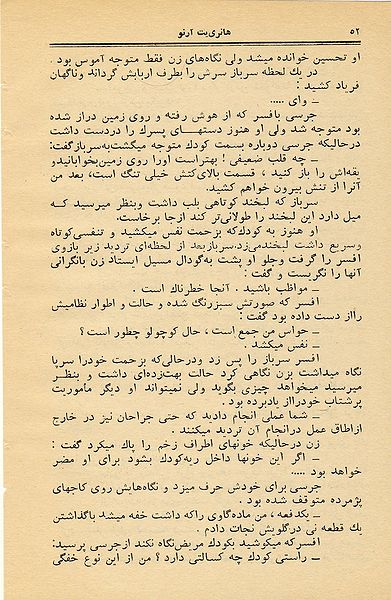 ۵۲
هانری‌یت آرنو
او تحسین خوانده میشد ولی نگاه‌های زن فقط متوجه آموس بود.
در یك لحظه سرباز سرش را بطرف اربابش گرداند وناگهان
فریاد کشید :
ــ وای .....
جرسی بافسر که از هوش رفته و روی زمین دراز شده
بود متوجه شد ولی او هنوز دستهــای پسرك را دردست داشت
درحالیکه جرسی دوباره بسمت کودك متوجه میگشت به‌سرباز گفت:
ــ چه قلب ضعیفی ! بهتراست اورا روی زمین‌بخوابانیدو
یقه‌اش را باز کنید ، قسمت بالای‌کتش خیلی تنگ است، بعد من
آنرا از تنش بیرون خواهم کشید.
سرباز که لبخند کوتاهی بلب داشت وبنظر میرسید کــه
میل دارد این لبخند را طولانی‌تر کند ازجا برخاست.
او هنوز به کودك‌که بزحمت نفس میکشید و تنفسی‌کوتاه
وسریع داشت لبخندمی‌زد،سربازبعد از لحظه‌ای تردید زیر بازوی
افسر را گرفت وجلو او پشت به‌گودال مسیل ایستاد زن بانگرانی
آنها را نگریست و گفت :
ــ مواظب باشید . آنجا خطرناك است .
افسر که صورتش سبزرنگ شده و حالت و اطوار نظامیش
رااز دست داده بود گفت :
ــ حواس من جمع است ، حال کوچولو چطور است ؟
ــ نفس میکشد .
افسر سرباز را پس زد ودرحالی‌که بزحمت خودرا سرپا
نگاه میداشت بزن نگاهی کرد حالت بهت‌زده‌ای داشت و بنظر
میرسید میخواهد چیزی بگوید ولی نمیتواند او دیگر ماموریت
پرشتاب خودرااز یادبرده بود .
ــ شما عملی انجام دادید که حتی جراحان نیز در خارج
ازاطاق عمل درانجام آن تردید میکنند .
زن درحالیکه خونهای اطراف زخم را پاك میکرد گفت :
ــ اگر این خونها داخل ریه‌کودك بشود برای او مضر
خواهد بود .....
جرسی برای خودش حرف میزد و نگاه‌هایش روی کاجهای
پژمرده متوقف شده بود .
ــ یکدفعه ، من ماده‌گاوی راکه داشت خفه میشد باگذاشتن
یك قطعه نی درگلویش نجات دادم .
افسرکه میکوشید بکودك مریض‌نگاه نکند ازجرسی پرسید:
ــ راستی کودك چه کسالتی دارد ؟ من از این نوع خفگی